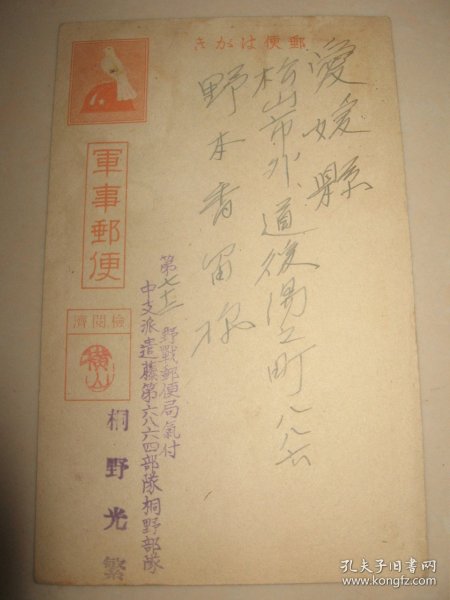 郵便はがき
愛媛縣
松山市外道後湯之町八八六
野本香留様
軍事郵便
檢閲濟
横山
野戰郵便局氣付
中支派遣藤第六八六四部隊桐野部隊
桐野光繁
孔夫子旧书网